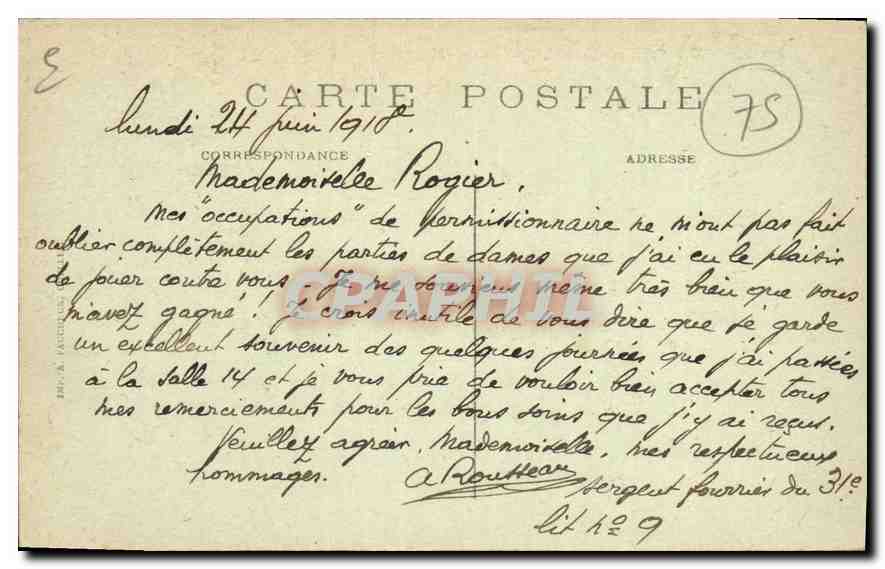 CARTE POSTALE
75
lundi 24 juin 1918.
CORRESPONDANCE
ADRESSE
Mademoiselle Rogier,
Mes "occupations" de permissionnaire ne m'ont pas fait
oublier complètement les parties de dames que j'ai eu le plaisir
de jouer contre vous. Je me souviens même très bien que vous
m'avez gagné! Je crois inutile de vous dire que je garde
un excellent souvenir des quelques journées que j'ai passées
à la salle 14 et je vous prie de vouloir bien accepter tous
mes remerciements pour les bons soins que j'y ai reçus.
Veuillez agréer, Mademoiselle, mes respectueux
hommages. A Rousseau
sergent fourrier du 31e
lit no 9
CPAPHIL